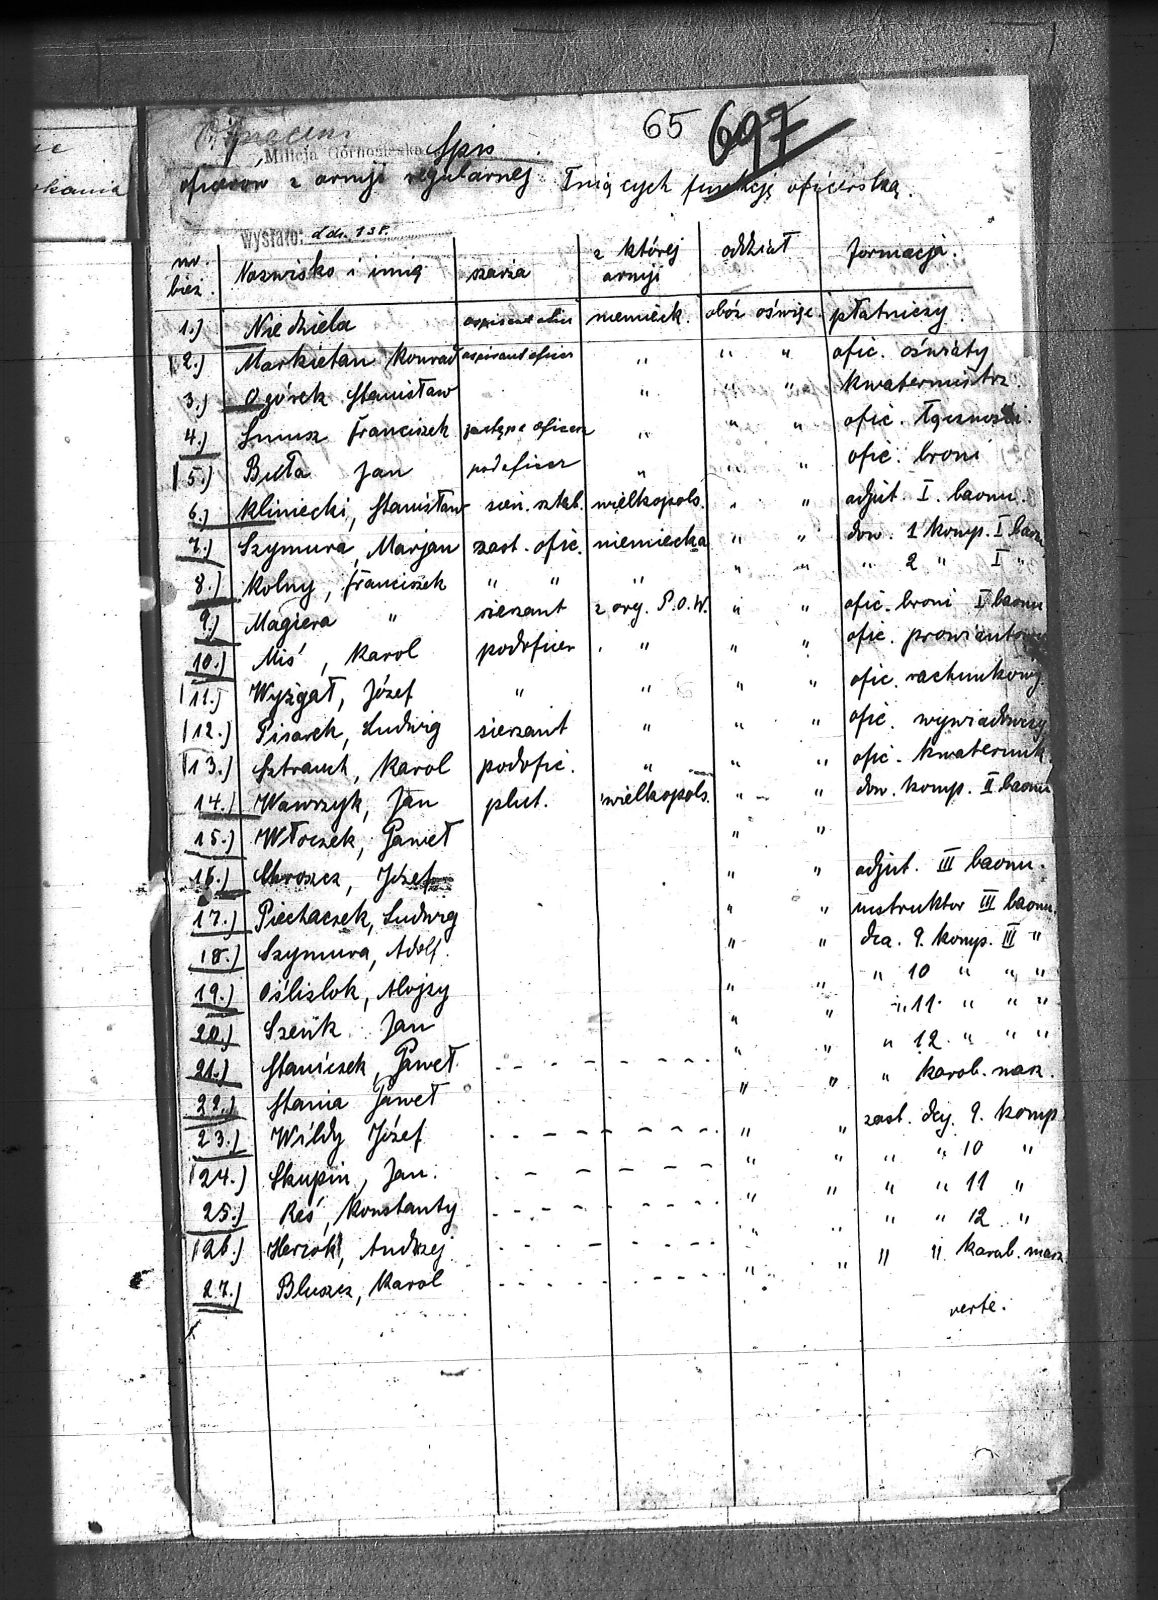 65 697
Milicja Górnośląska
Spis
oficerów z armji regularnej pełniących funkcję oficerską.
wysłano:
nr. bież. Nazwisko i imię szarża z której armji oddział formacja.
1.) Niedziela niemieck. obóz oświęc. płatniczy
2.) Markietan Konrad aspirant oficer " " " ofic. oświaty
3.) Ogórek Stanisław " " " kwatermistrz
4.) Smusz Franciszek zastępc. oficera " " " ofic. łączności.
5.) Buła Jan podoficer " " " ofic. broni
6.) Kliniecki, Stanisław sierż. sztab. wielkopols. " " adjut. I. baonu.
7.) Szymura, Marjan zast. ofic. niemiecka " " dow. 1 komp. I baon
8.) Kolny, Franciszek " " " " " " 2 " I "
9.) Magiera " sierżant z org. P.O.W. " " ofic. broni I baonu
10.) Miś, Karol podoficer " " " ofic. prowiantowy
11.) Wyżgał, Józef " " " " ofic. rachunkowy
12.) Pisarek, Ludwig sierżant " " " ofic. wywiadowczy
13.) Sztrauch, Karol podofic. " " " ofic. kwaterunk.
14.) Wawrzyk, Jan plut. wielkopols. " " dow. komp. II baonu
15.) Włoczek, Paweł " "
16.) Józef " " adjut. III baonu.
17.) Piechaczek, Ludwig " " instruktor III baonu.
18.) Szymura, Adolf. " " dca. 9. komp. III "
19.) Oślizlok, Alojzy " " " 10 " " "
20.) Szeńk Jan " " " 11. " " "
21.) Staniczek, Paweł " " " 12. " " "
22.) Stania Paweł " " " karab. masz.
23.) Wildy Józef " " zast. dcy. 9. komp
24.) Skupin, Jan. " " " " 10 "
25.) Reś, Konstanty " " " " 11 "
26.) Andrzej " " " " 12 "
27.) Bluszcz, Karol " " " " karab. masz
verte.